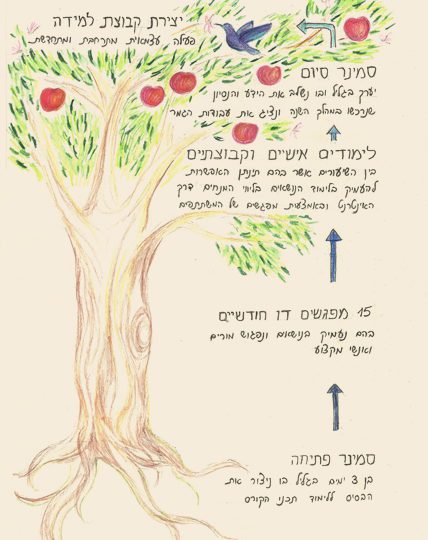 יצירת קבוצת למידה
פעילה עצמאית מתרחבת ומתחדשת
סמינר סיום
יערך בגליל ובו נשלב את הידע והנסיון
שנרכשו במהלך השנה ונציג את עבודות הגמר
לימודים אישיים וקבוצתיים
בין השיעורים אשר בהם תינתן האפשרות
להעמיק בלימוד הנושאים בליווי המנחים דרך
האינטרנט ובאמצעות מפגשים של המשתתפים
15 מפגשים דו חודשיים
בהם נעמיק בנושאים ונפגוש מורים
ואנשי מקצוע
סמינר פתיחה
בן 3 ימים בגליל בו ניצור את
הבסיס ללימוד תכני הקורס